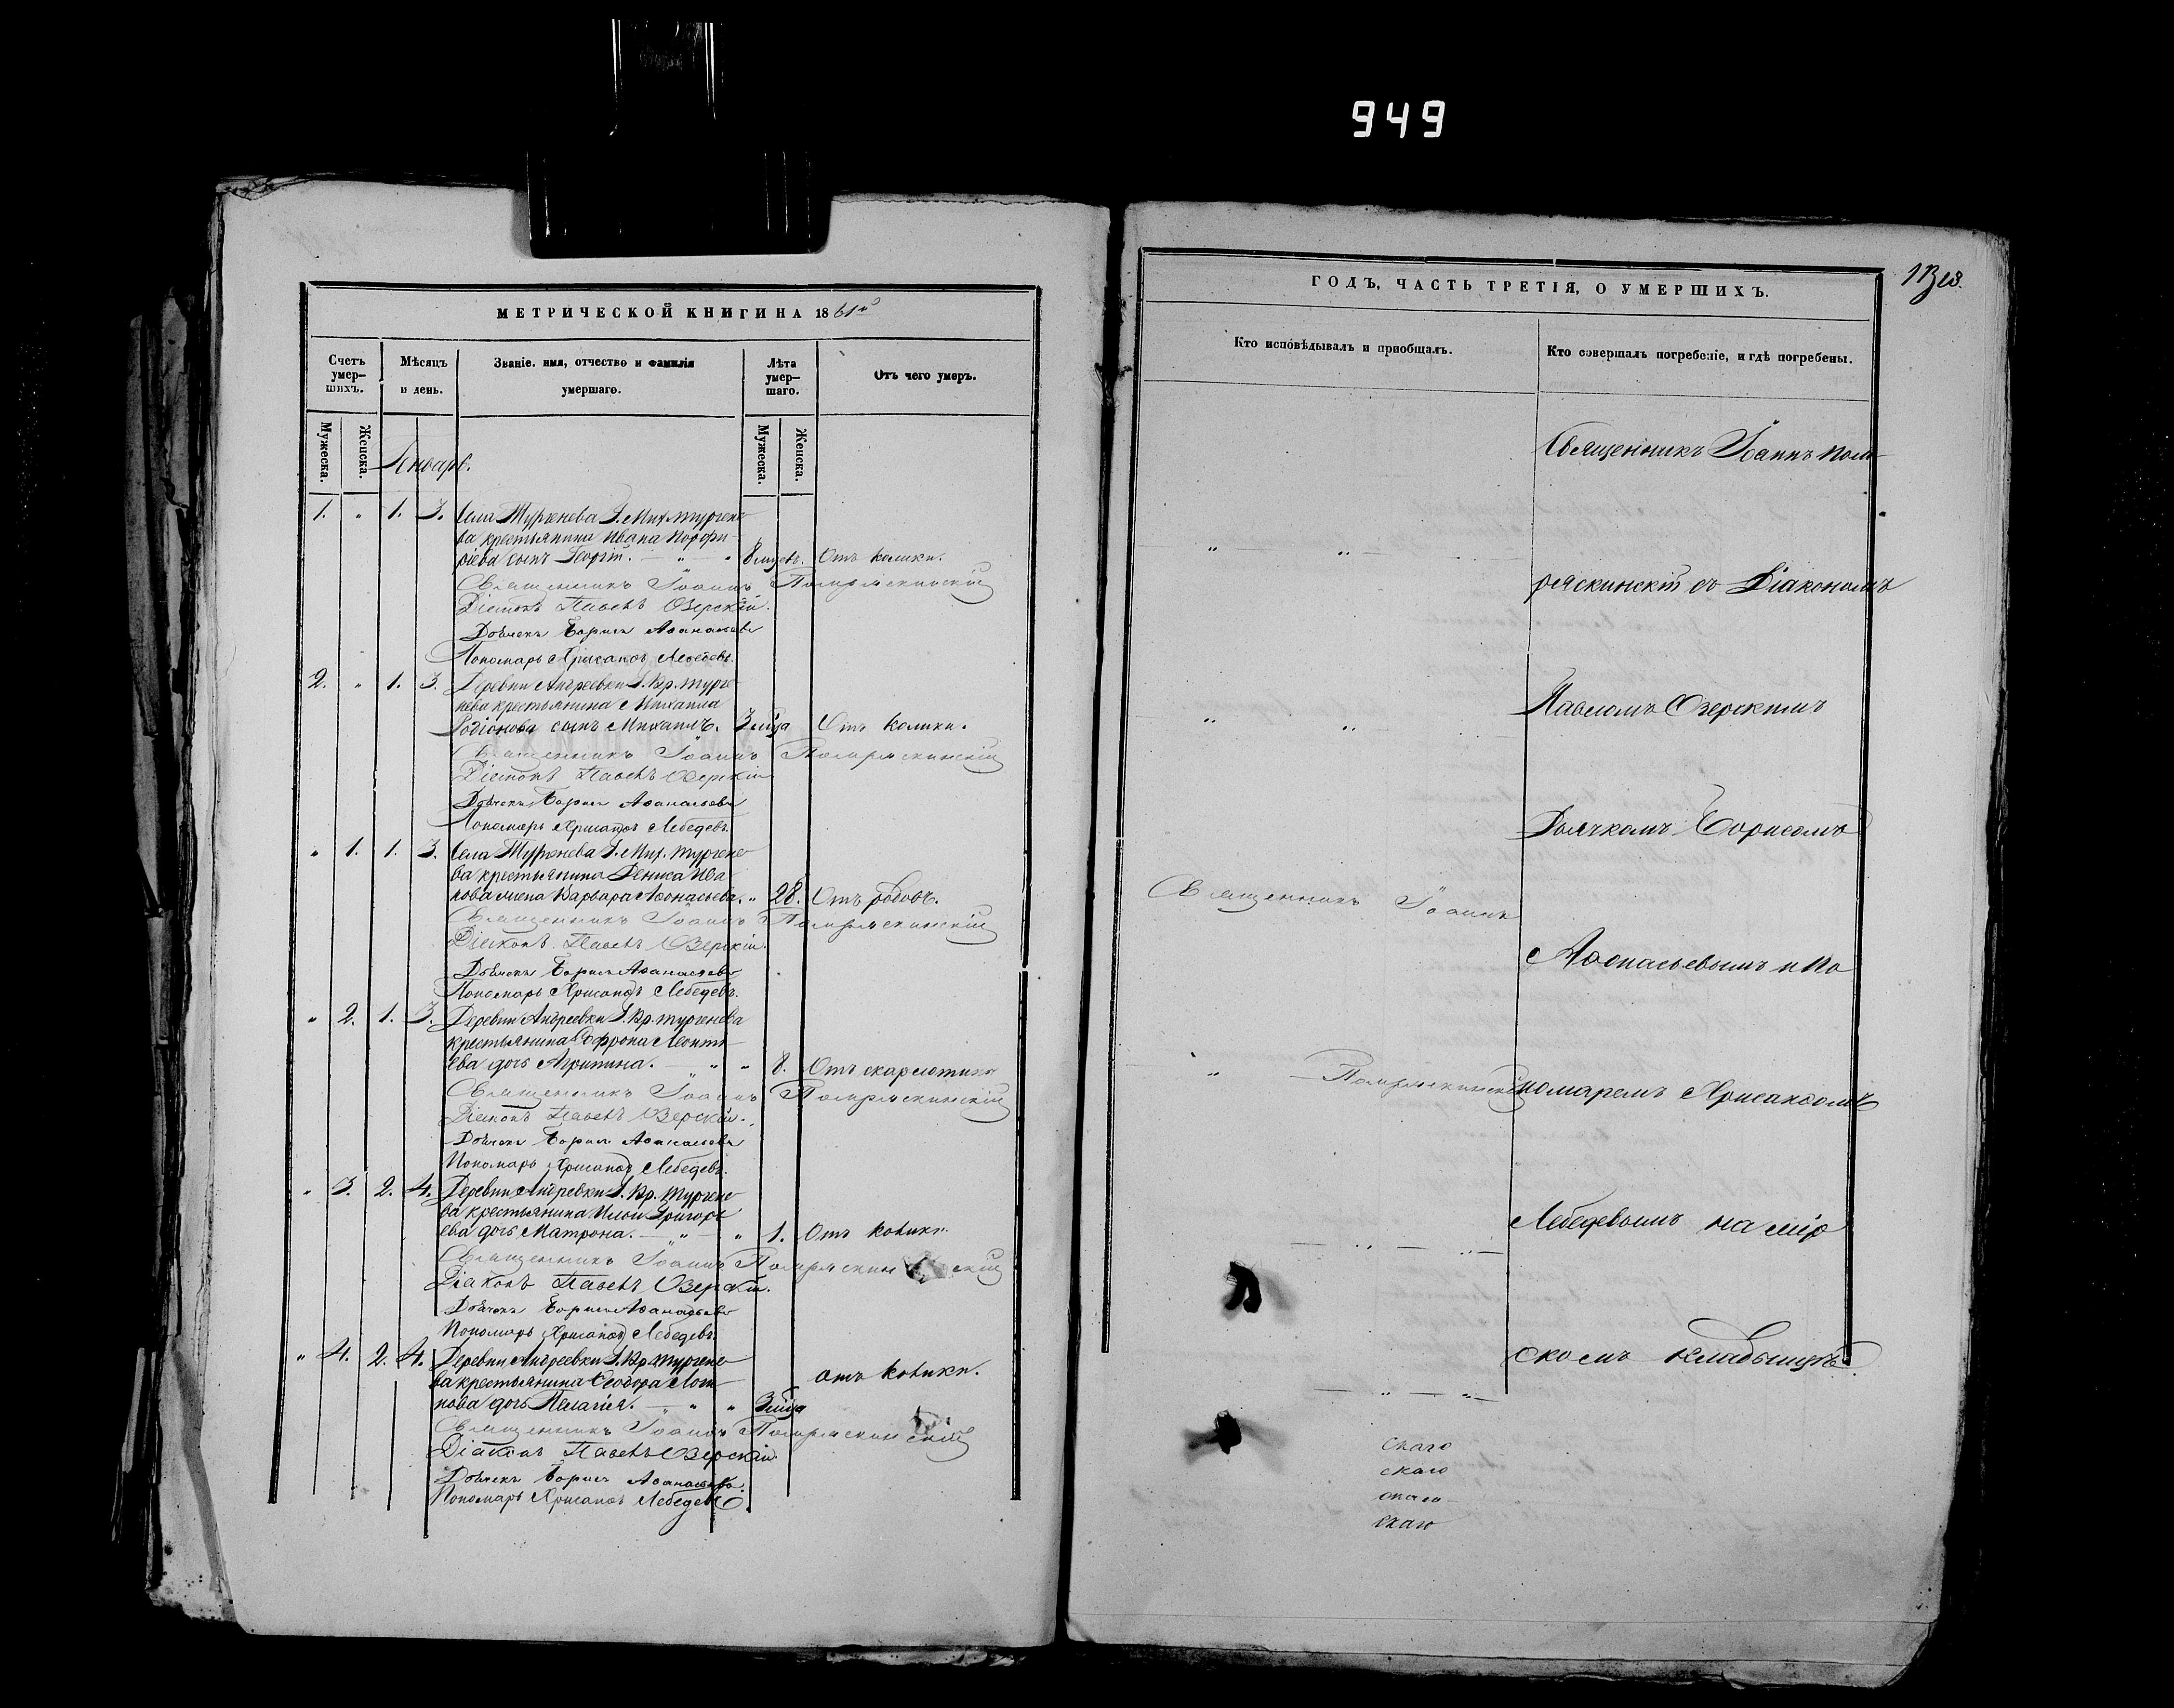 949
МЕТРИЧЕСКОЙ КНИГИ НА 1861й
Счетъ умер-шихъ.
Мужеска.
Женска.
Мѣсяцъ и день.
Званіе. имя, отчество и фамилія умершаго.
Лѣта умер-шаго.
Мужеска.
Женска.
Отъ чего умеръ.
Январь.
1. " 1. 3. Села Тургенева Г. Мих. Тургене-
ва крестьянина Ивана Порфи-
ріева сынъ Георгій. " " 8 мцевъ. Отъ колики.
Священникъ Іоаннъ Помряскинскій
Діаконъ Павелъ Озерскій.
Дьячекъ Борисъ Афанасьевъ
Пономарь Хрисанфъ Лебедевъ.
2. " 1. 3. Деревни Андреевки Г. Бр. Турге
нева крестьянина Михаила
Родіонова сынъ Михаилъ. 3 мца Отъ колики.
Священникъ Іоаннъ Помряскинскій
Діаконъ Павелъ Озерскій
Дьячекъ Борисъ Афанасьевъ
Пономарь Хрисанфъ Лебедевъ.
" 1. 1. 3. Села Тургенева Г. Мих. Тургене-
ва крестьянина Дениса Ива
нова жена Варвара Афонасьева. " 28. Отъ родовъ.
Священникъ Іоаннъ Помряскинскій
Діаконъ Павелъ Озерскій.
Дьячекъ Борисъ Афанасьевъ
Пономарь Хрисанфъ Лебедевъ.
" 2. 1. 3. Деревни Андреевки Г. Бр. Тургенева
крестьянина Софрона Леонть
ева дочь Агрипина. " " 8. Отъ скарлотины
Священникъ Іоаннъ Помряскинскій
Діаконъ Павелъ Озерскій.
Дьячекъ Борисъ Афанасьевъ
Пономарь Хрисанфъ Лебедевъ.
" 3. 2. 4. Деревни Андревки Г. Бр. Тургене-
ва крестьянина Ильи Григорь
ева дочь Матрона. " " 1. Отъ колики.
Священникъ Іоаннъ Помряскинскій
Діаконъ Павелъ Озерскій.
Дьячекъ Борисъ Афанасьевъ
Пономарь Хрисанфъ Лебедевъ.
" 4. 2. 4. Деревни Андреевки Г. Бр. Тургене-
ва крестьянина Ѳеодора
нова дочь Пелагія. " " 3 мца отъ колики.
Священникъ Іоаннъ Помряскинскій
Діаконъ Павелъ Озерскій.
Дьячекъ Борисъ Афанасьевъ.
Пономарь Хрисанфъ Лебедевъ.
ГОДЪ, ЧАСТЬ ТРЕТІЯ, О УМЕРШИХЪ.
Кто исповѣдывалъ и пріобщалъ.
Кто совершалъ погребеніе, и гдѣ погребены.
Священникъ Іоаннъ Пом-
" "
ряскинскій съ Діакономъ
Павломъ Озерскимъ
" "
Дьячкомъ Борисомъ
Священникъ Іоаннъ
Афонасьевымъ и По
" Помряскинскій
номаремъ Хрисанфомъ
Лебедевымъ на мір
" "
скомъ кладбищѣ.
" "
скаго
скаго
скаго
скаго